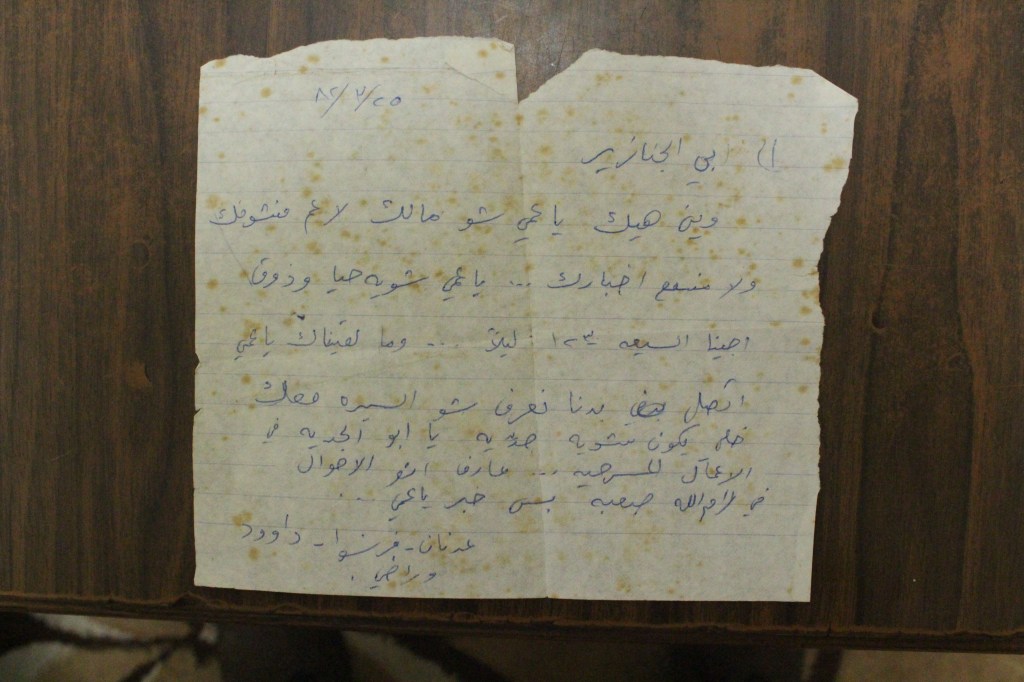 ٨٢/٣/٢٥
الى ابي الجنازير
وين هيك يا عمي شو مالك لا عم منشوفك
ولا منسمع اخبارك ... يا عمي شويه حيا وذوق
اجينا السيعه ليلاً ... وما لقيناك يا عمي
اتصل بدنا نعرف شو السيره معك
خلي يكون شويه جديه يا ابو الجديه في
الاعمال المسرحيه ... عارف انو الاحوال
في رام الله صعبه بس خبر يا عمي ...
عدنان - فرنسوا - داوود
وراضي .